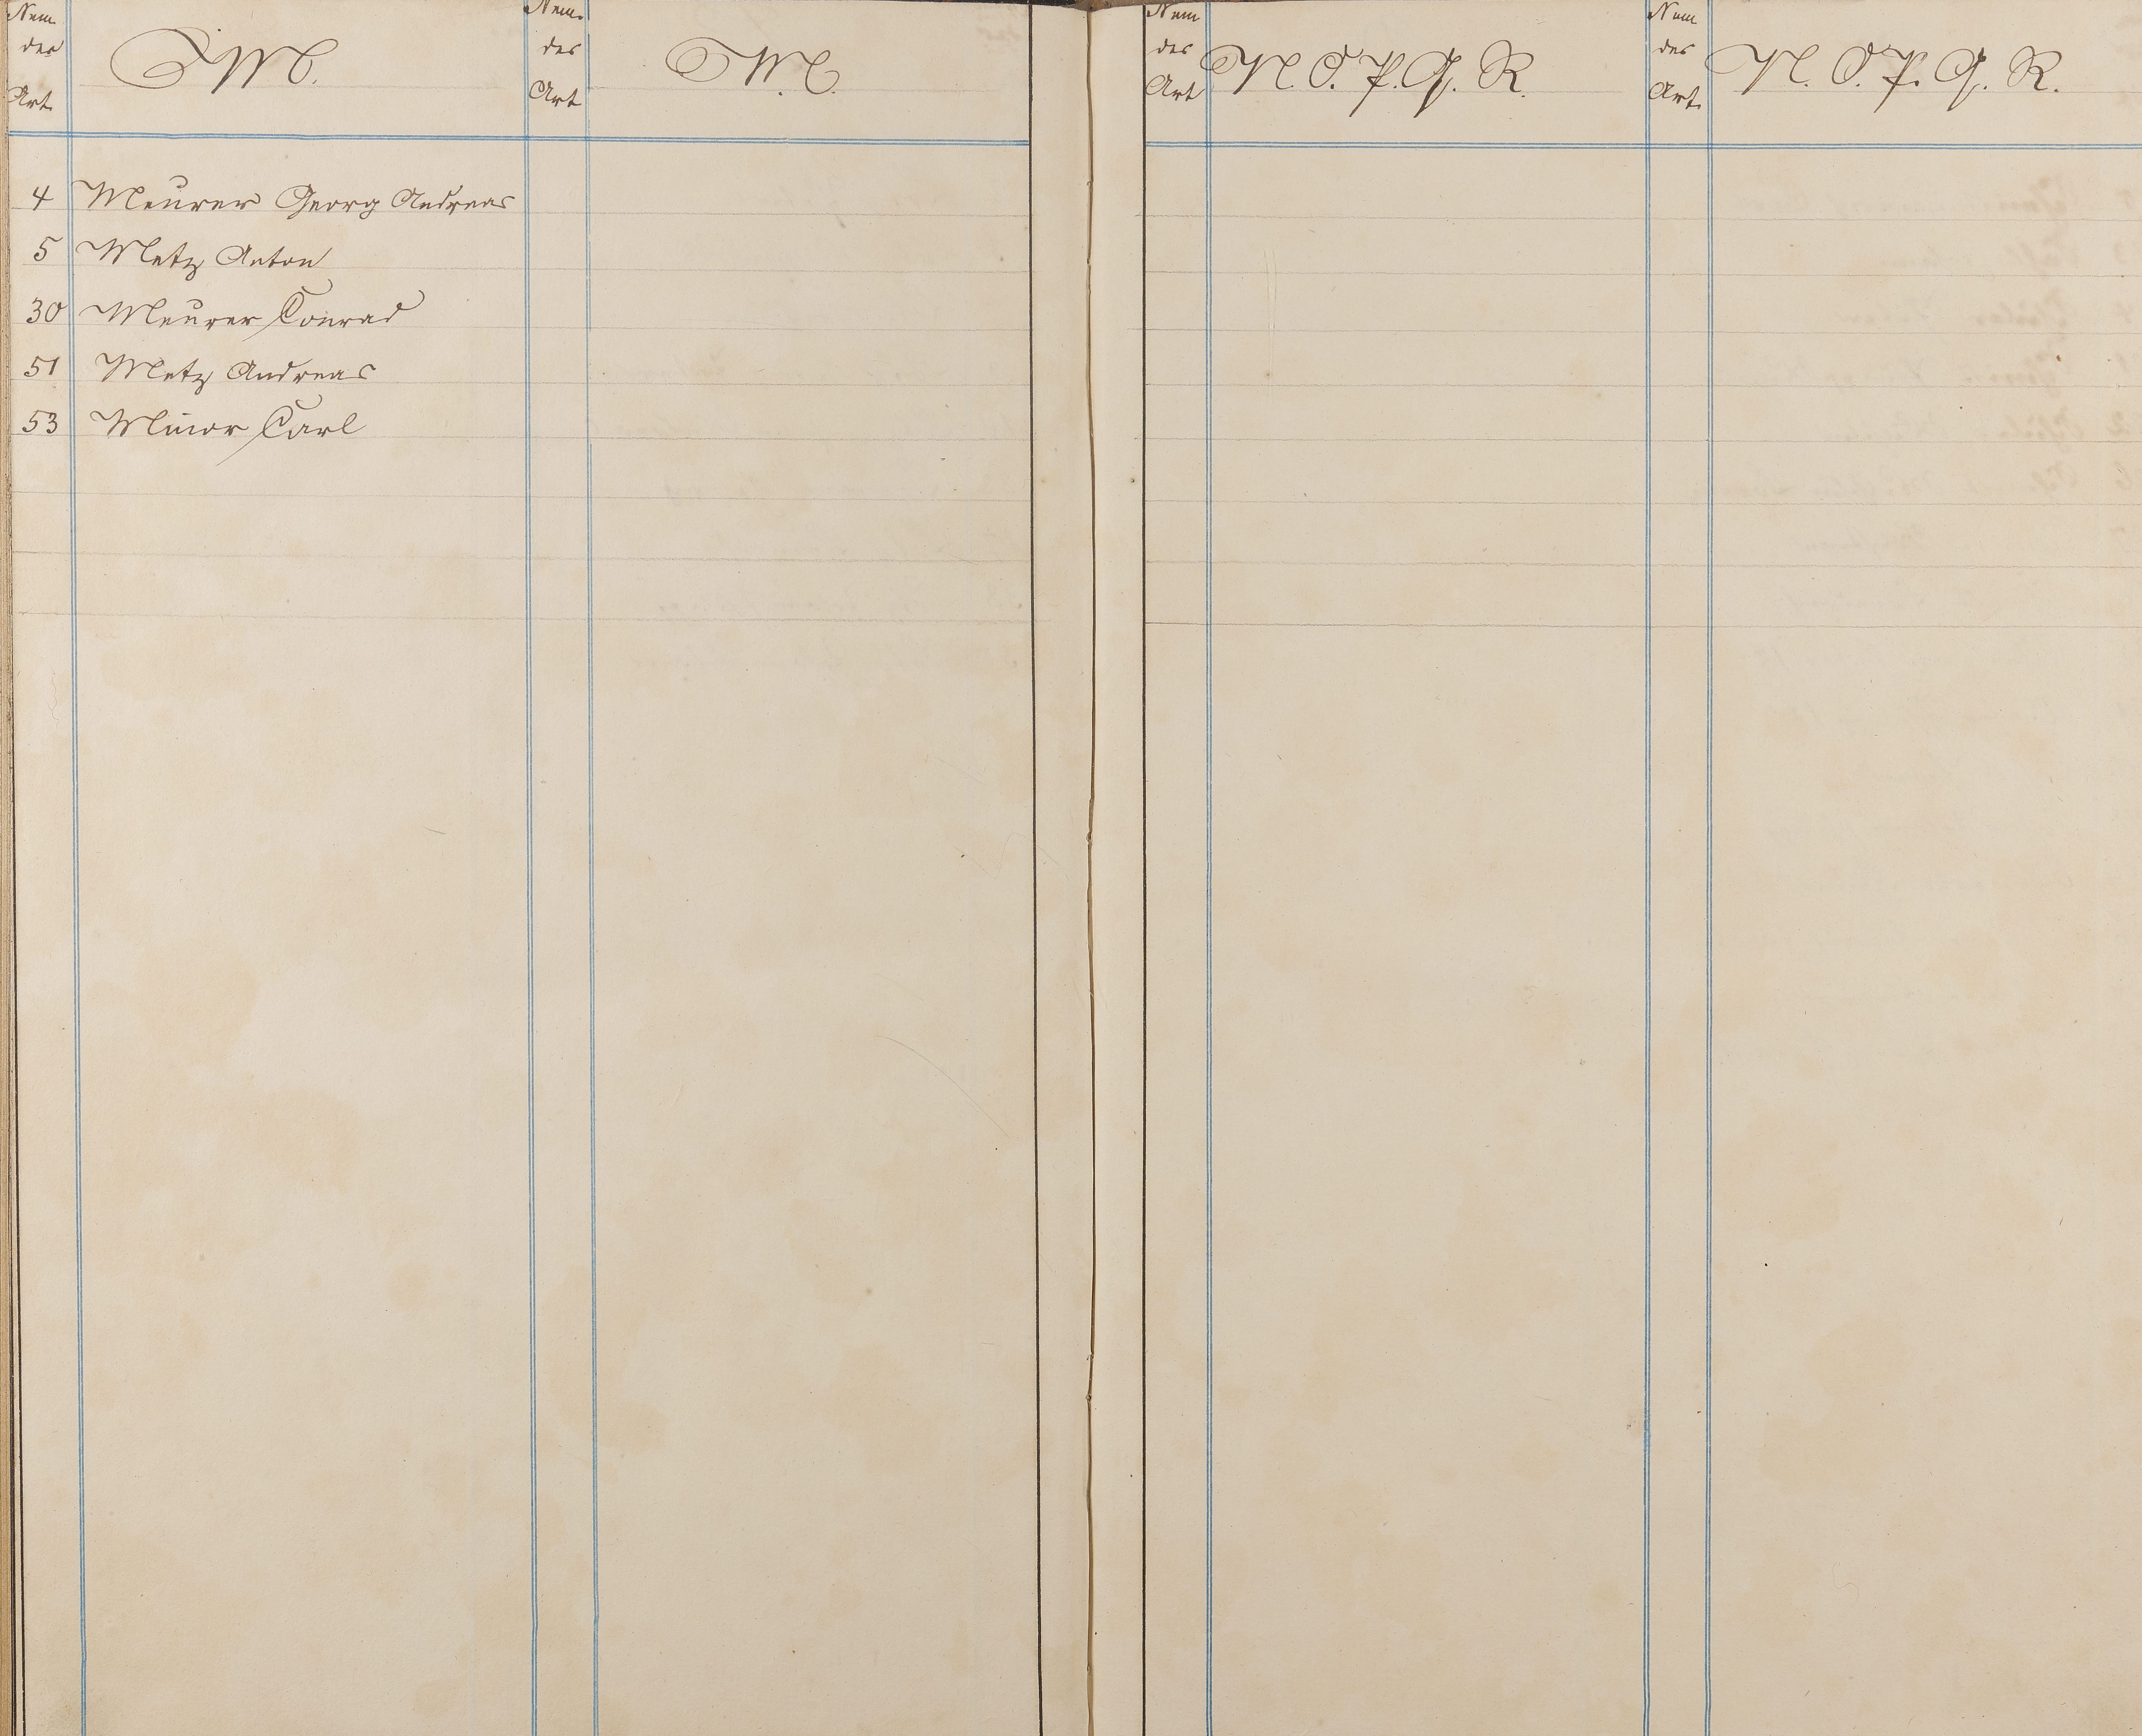 Num
des
Art.
M.
Num.
des
Art
M.
4 Meurer Georg Andreas
5 Metz Anton
30 Meurer Conrad
51 Metz Andreas
53 Minor Carl
Num
des
Art
N. O. P. Q. R.
Num
des
Art.
N. O. P. Q. R.